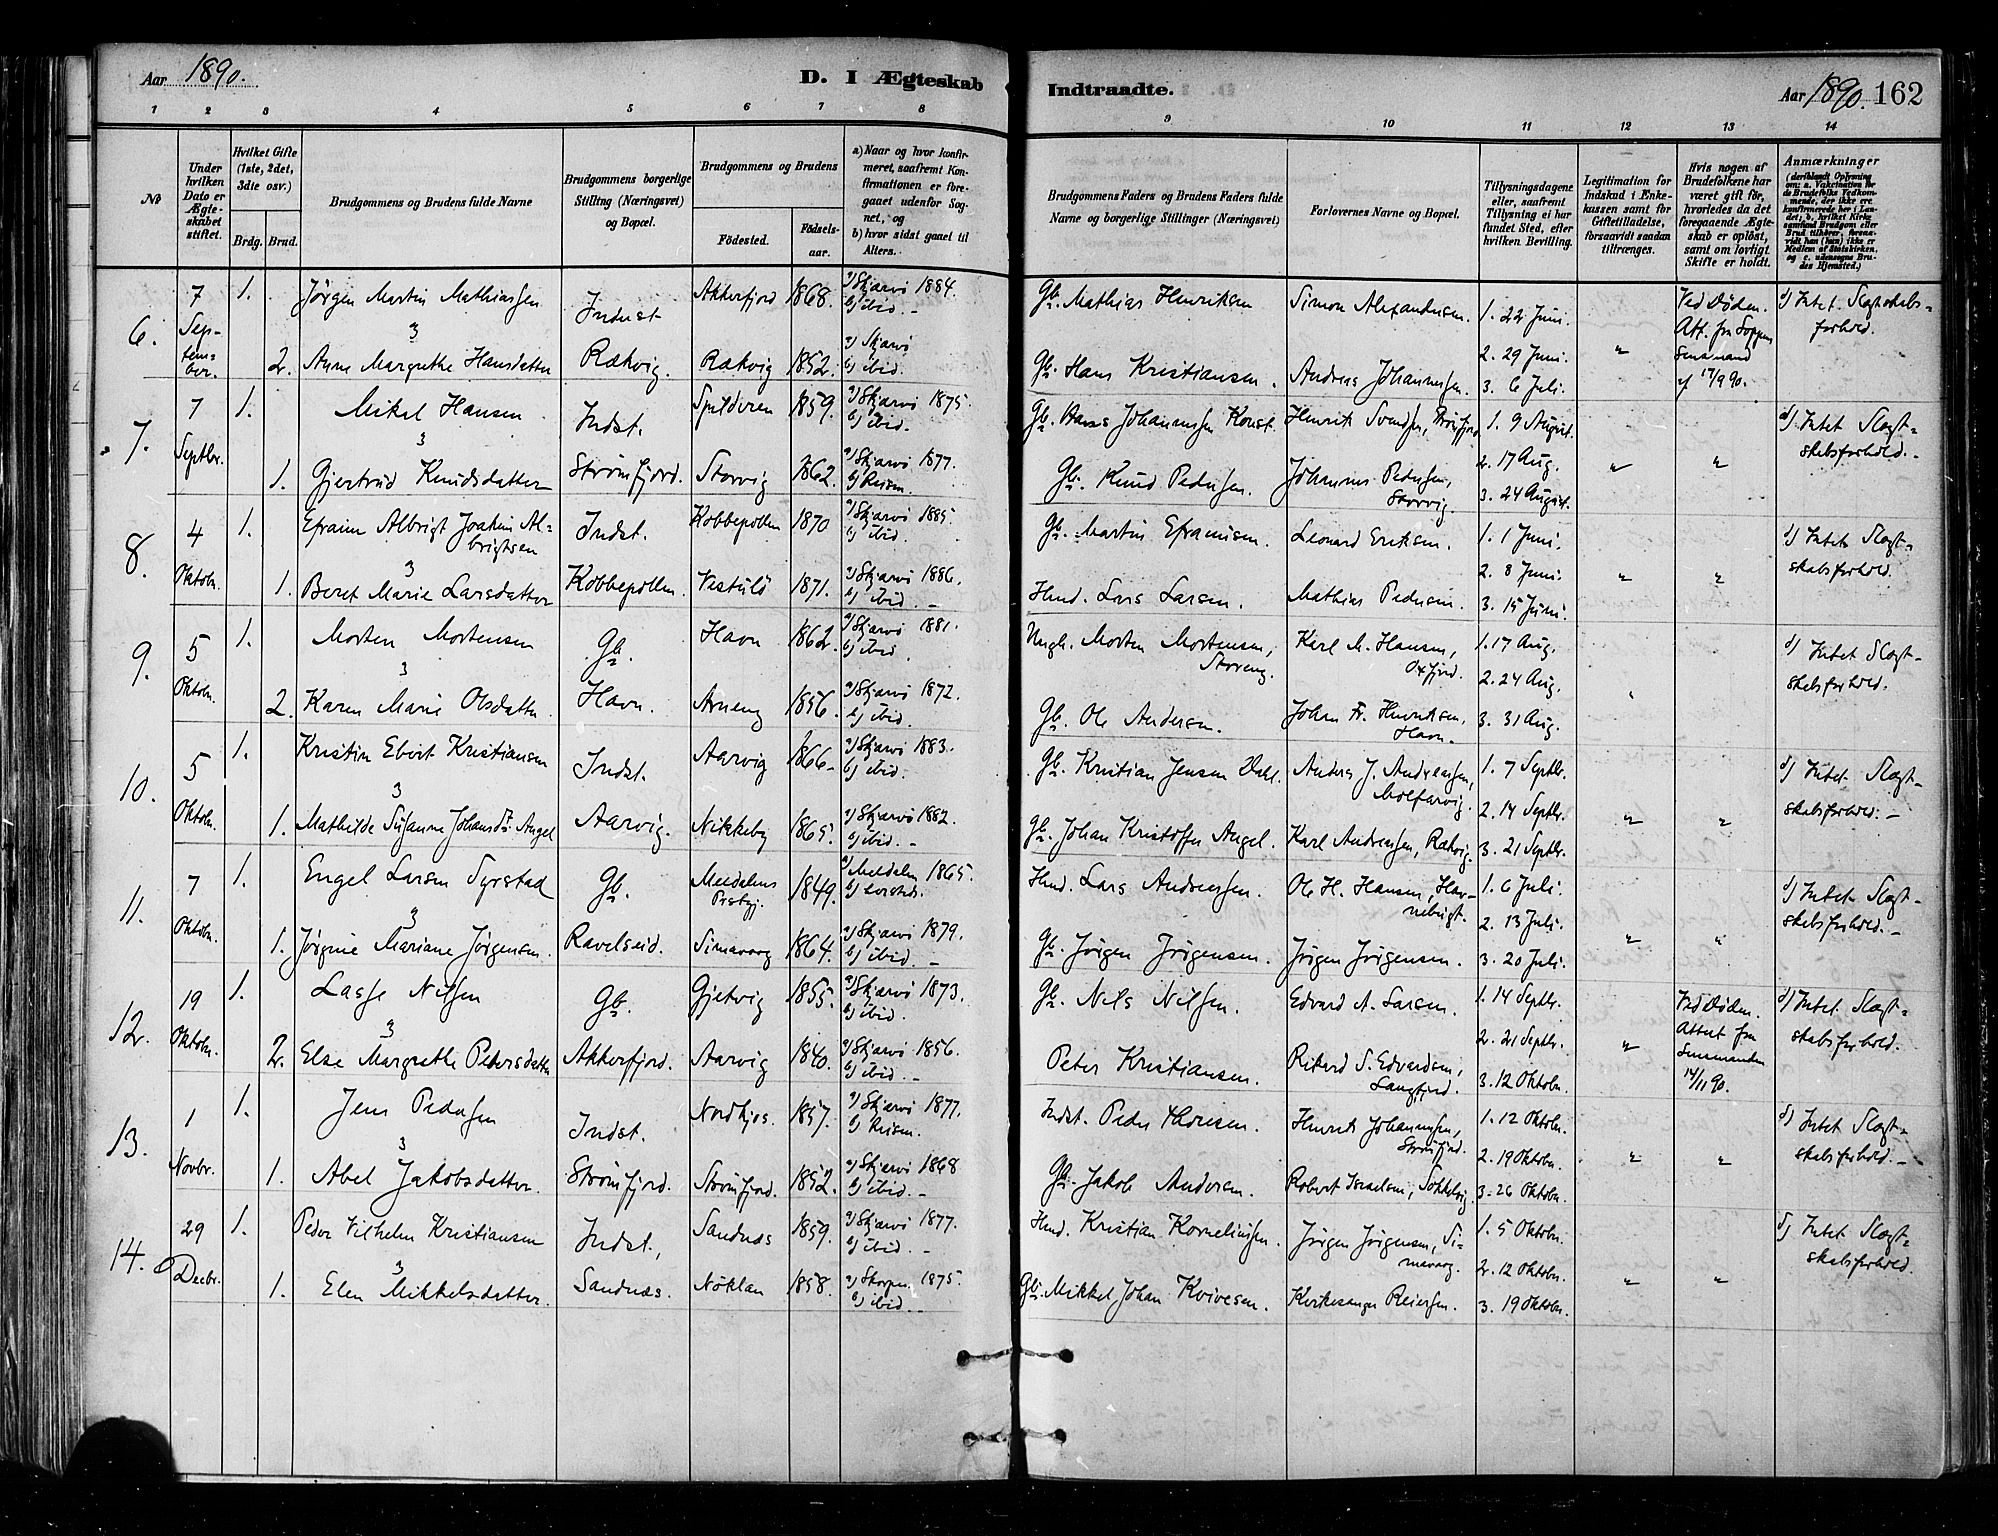 Aar 1890.
D. I Ægteskab
Indtraadte.
Aar 1890. 162
1 2 3 4 5 6 7 8 9 10 11 12 13 14
No
Under hvilken Dato er Ægteskabet stiftet.
Hvilket Gifte (1ste, 2det, 3dte osv.)
Brdg. Brud.
Brudgommens og Brudens fulde Navne
Brudgommens borgerlige Stilling (Næringsvei) og Bopæl.
Brudgommens og Brudens
Fødested. Fødselsaar.
a) Naar og hvor konfirmeret, saafremt Konfirmationen er foregaaet udenfor Sognet, og
b) hvor sidst gaaet til Alters.
Brudgommens Faders og Brudens Faders fulde Navne og borgerlige Stillinger (Næringsvei)
Forlovernes Navne og Bopæl.
Tillysningsdagene eller, saafremt Tillysning ei har fundet Sted, efter hvilken Bevilling.
Legitimation for Indskud i Enkekassen samt for Giftetilladelse, forsaavidt saadan tiltrænges.
Hvis nogen af Brudefolkene har været gift før, hvorledes da det foregaaende Ægteskab er opløst, samt om lovligt Skifte er holdt.
Anmærkninger (deriblandt Oplysning om: a. Vakcination for de Brudefolks Vedkommende, der ikke ere konfirmerede her i Landet; b. hvilket Kirkesamfund Brudgom eller Brud tilhører, forsaavidt han (hun) ikke er Medlem af Statskirken, og c. udensogns Brudes Hjemsted.)
6. 7 September 1. Jørgen Martin Mathiassen Indst Akkerfjord 1868. a) Skjærvø 1884. b) ibid. Gb. Mathias Henriksen Simon Alexandersen. 1. 22 Juni. Ved Døden. d) Intet Slagtskabsforhold.
2. Anne Margrethe Hansdatter Rækvig. Rækvig 1852. a) Skjærvø b) ibid. Gb. Hans Kristiansen. Andreas Johannessen. 2. 29 Juni. 3. 6 Juli. " Att. fra Soppen Lensmand af 17/9 90.
7. 7 Septbr. 1. Mikal Hansen Indst. Spilderen 1859. a) Skjærvø 1875. b) ibid. Gb. Hans Johannessen Konst. Henrik Svendsen, Strømfjord 1. 9 August. d) Intet Slagtskabsforhold.
1. Gjertrud Knudsdatter Strømfjord. Storvig 1862. a) Skjærvø 1877. b) Reisen. Gb. Knud Pedersen. Johannes Pedersen, Storvig 2. 17 Aug. 3. 24 August. " "
8. 4 Oktobr. 1. Efraim Albrigt Joakim Albrigtsen Indst. Kobbepollen 1870 a) Skjærvø 1885. b) ibid. Gb. Martin Efraimsen. Leonard Eriksen. 1. 1 Juni. d) Intet Slagtskabsforhold.
1. Beret Marie Larsdatter Kobbepollen. 1871. a) Skjærvø 1886. b) ibid. Lars Larsen. Mathias Pedersen. 2. 8 Juni. 3. 15 Juni. " "
9. 5 Oktobr. 1. Morten Mortensen Gb. Havn 1862. a) Skjærvø 1881. b) ibid. Ungk. Morten Mortensen, Storeng. Karl M. Hansen, Oxfjord. 1. 17 Aug. d) Intet Slagtskabsforhold.
2. Karen Marie Olsdatter Havn. Arneng 1856. a) Skjærvø 1872. b) ibid. Gb. Ole Andersen. Johan Fr. Henriksen, Havn. 2. 24 Aug. 3. 31 Aug.
10. 5 Oktobr. 1. Kristin Ebert Kristiansen Indst. Aarvig 1866 a) Skjærvø 1883. b) ibid. Gb. Kristian Jensen Dahl. Anders J. Andreassen, 1. 7 Septbr. d) Intet Slagtskabsforhold.
1. Mathilde Susanne Johansd. Angel Aarvig. Nikkeby 1865. a) Skjærvø 1882. b) ibid. Gb. Johan Kristoffer Angel. Karl Andreassen, Rækvig. 2. 14 Septbr. 3. 21 Septbr. " "
11. 7 Oktobr. 1. Engel Larsen Syrstad Gb. Meldalens Prstgj. 1849. a) Meldalen 1865. Lars Andreassen. Ole H. Hansen, Havnebugt. 1. 6 Juli. d) Intet Slagtskabsforhold.
1. Jørgine Mariane Jørgensen. Ravelseid. Simavaag 1864. a) Skjærvø 1879. b) ibid. Gb. Jørgen Jørgensen. Jørgen Jørgensen. 2. 13 Juli. 3. 20 Juli. " "
12. 19 Oktobr. 1. Lasse Nilsen Gb. Gjetvig 1855. a) Skjærvø 1873. b) ibid. Gb. Nils Nilsen. Edvard A. Larsen. 1. 14 Septbr. Ved Døden. d) Intet Slagtskabsforhold.
2. Else Margrethe Petersdatter Akkerfjord. Aarvig 1840. a) Skjærvø 1856. b) ibid. Peter Kristiansen. Rikard S. Edvardsen, Langfjord. 2. 21 Septbr. 3. 12 Oktobr. " Attest fra Lensmanden 14/11 90.
13. 1 Novbr. 1. Jens Pedersen Indst. Nordkjos. 1857. a) Skjærvø 1877. b) Reisen. Indst. Peder Thoresen. Henrik Johannessen, Strømfjord. 1. 12 Oktobr. d) Intet Slagtskabsforhold.
1. Abel Jakobsdatter. Strømfjord. Strømfjord. 1852. a) Skjærvø 1868 b) ibid. Gb. Jakob Andersen. Robert Israelsen, Sokkelvig. 2. 19 Oktobr. 3. 26 Oktobr. " "
14. 29 Decbr. 1. Peder Vilhelm Kristiansen Indst., Sandnæs 1859. a) Skjærvø 1877. b) ibid. Kristian Korneliussen. Jørgen Jørgensen, Simavaag. 1. 5 Oktobr. d) Intet Slagtskabsforhold.
1. Elen Mikkelsdatter. Sandnæs. Nøklan 1858. 1875. b) ibid. Gb. Mikkel Johan Kvivesen. Kirkesanger Reiersen. 2. 12 Oktobr. 3. 19 Oktobr. " "